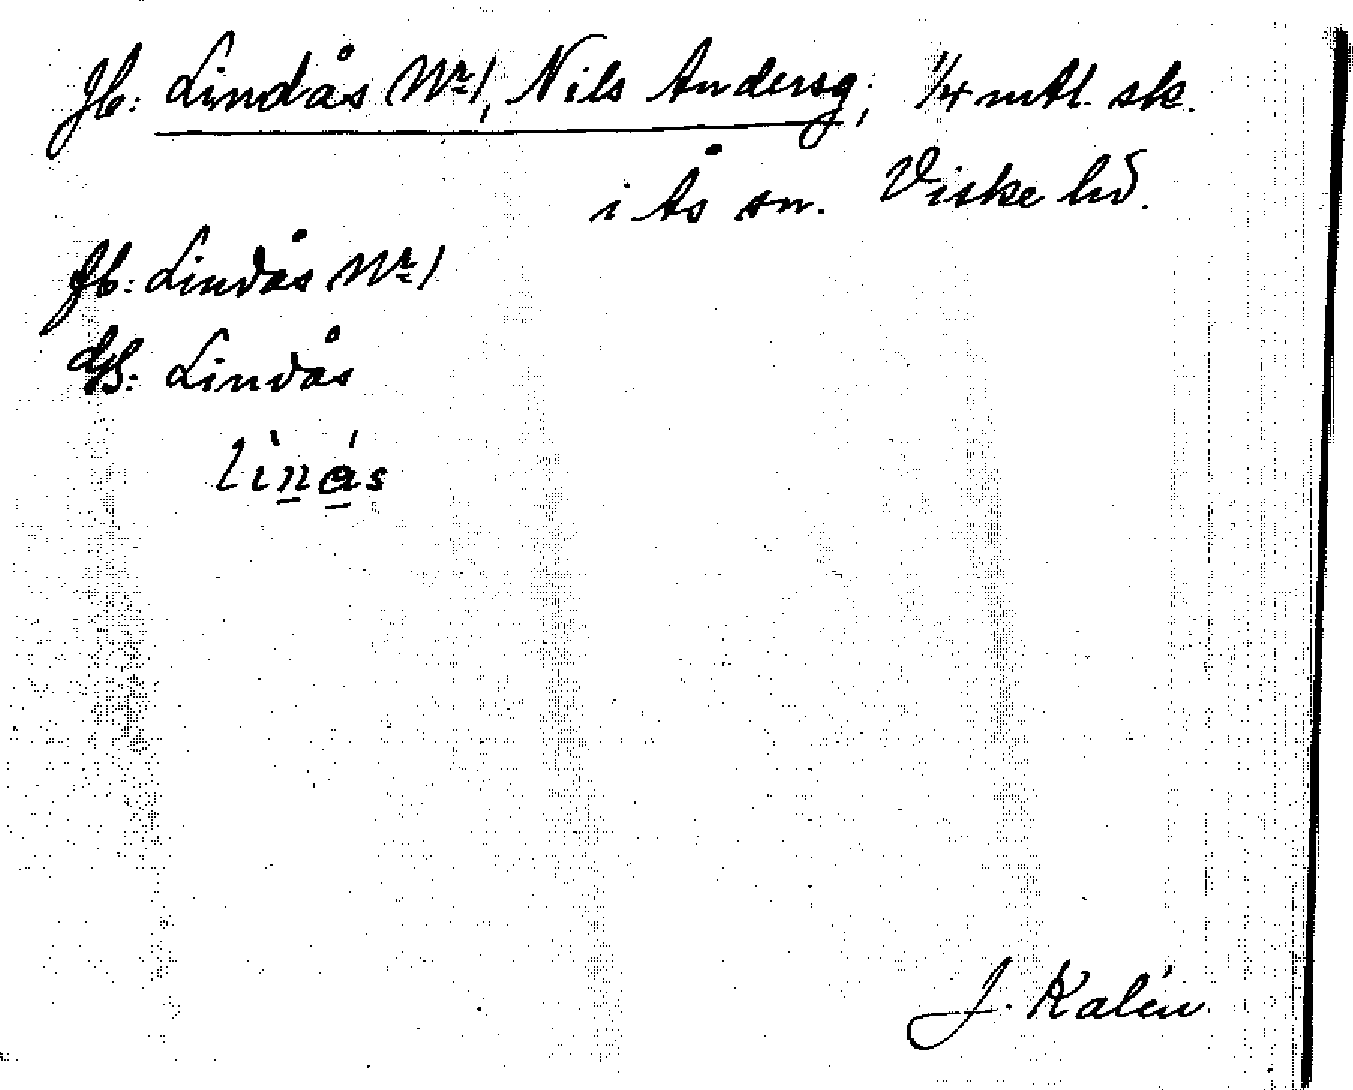 Jb: Lindås Nr 1, Nils Andersg; 1/4 mtl. sk.
i Ås sn. Viske hd.
Jb: Lindås Nr 1
Lindås
lìnás
J. Kalén